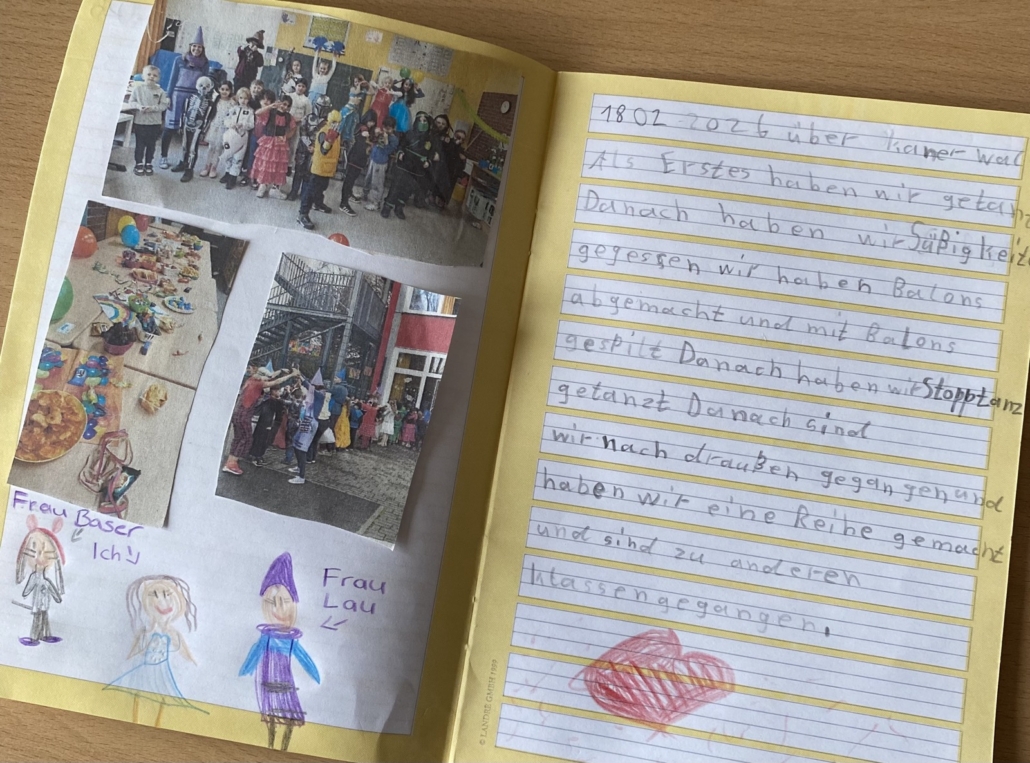 Frau Baser
Ich
Frau
Lau
18 02 2026 über kaner wal
Als Erstes haben wir getan
Danach haben wir Süßigkeite
gegessen wir haben Balons
abgemacht und mit Balons
gespilt Danach haben wir Stopptanz
getanzt Danach sind
wir nach draußen gegangen und
haben wir eine Reihe gemacht
und sind zu anderen
klassengegangen.
© LANDRÉ GMBH